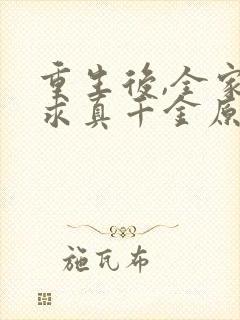 重生後,全家
求真千金原
施瓦布